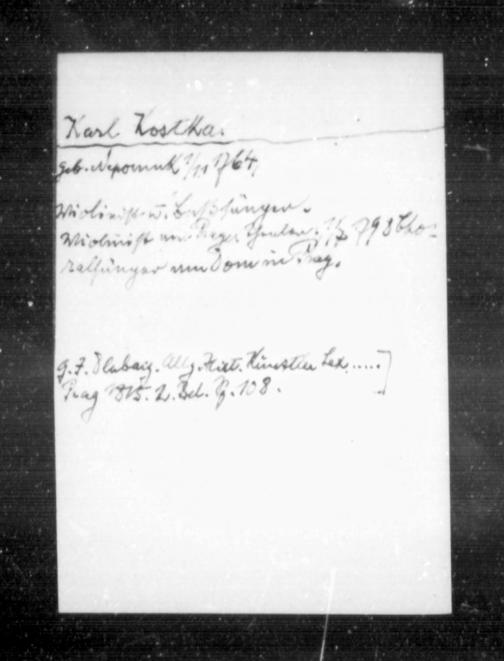 Karl Kostka.
geb. Nepomuk 1/11 1764,
Violinist u. Baßsänger.
Violinist am Prager Theater. 798 Cho-
ralsänger am Dom in Prag.
G. J. Dlabacz. Allg. Hist. Künstler Lex.....]
Prag 1815. 2. Bd. P. 108.